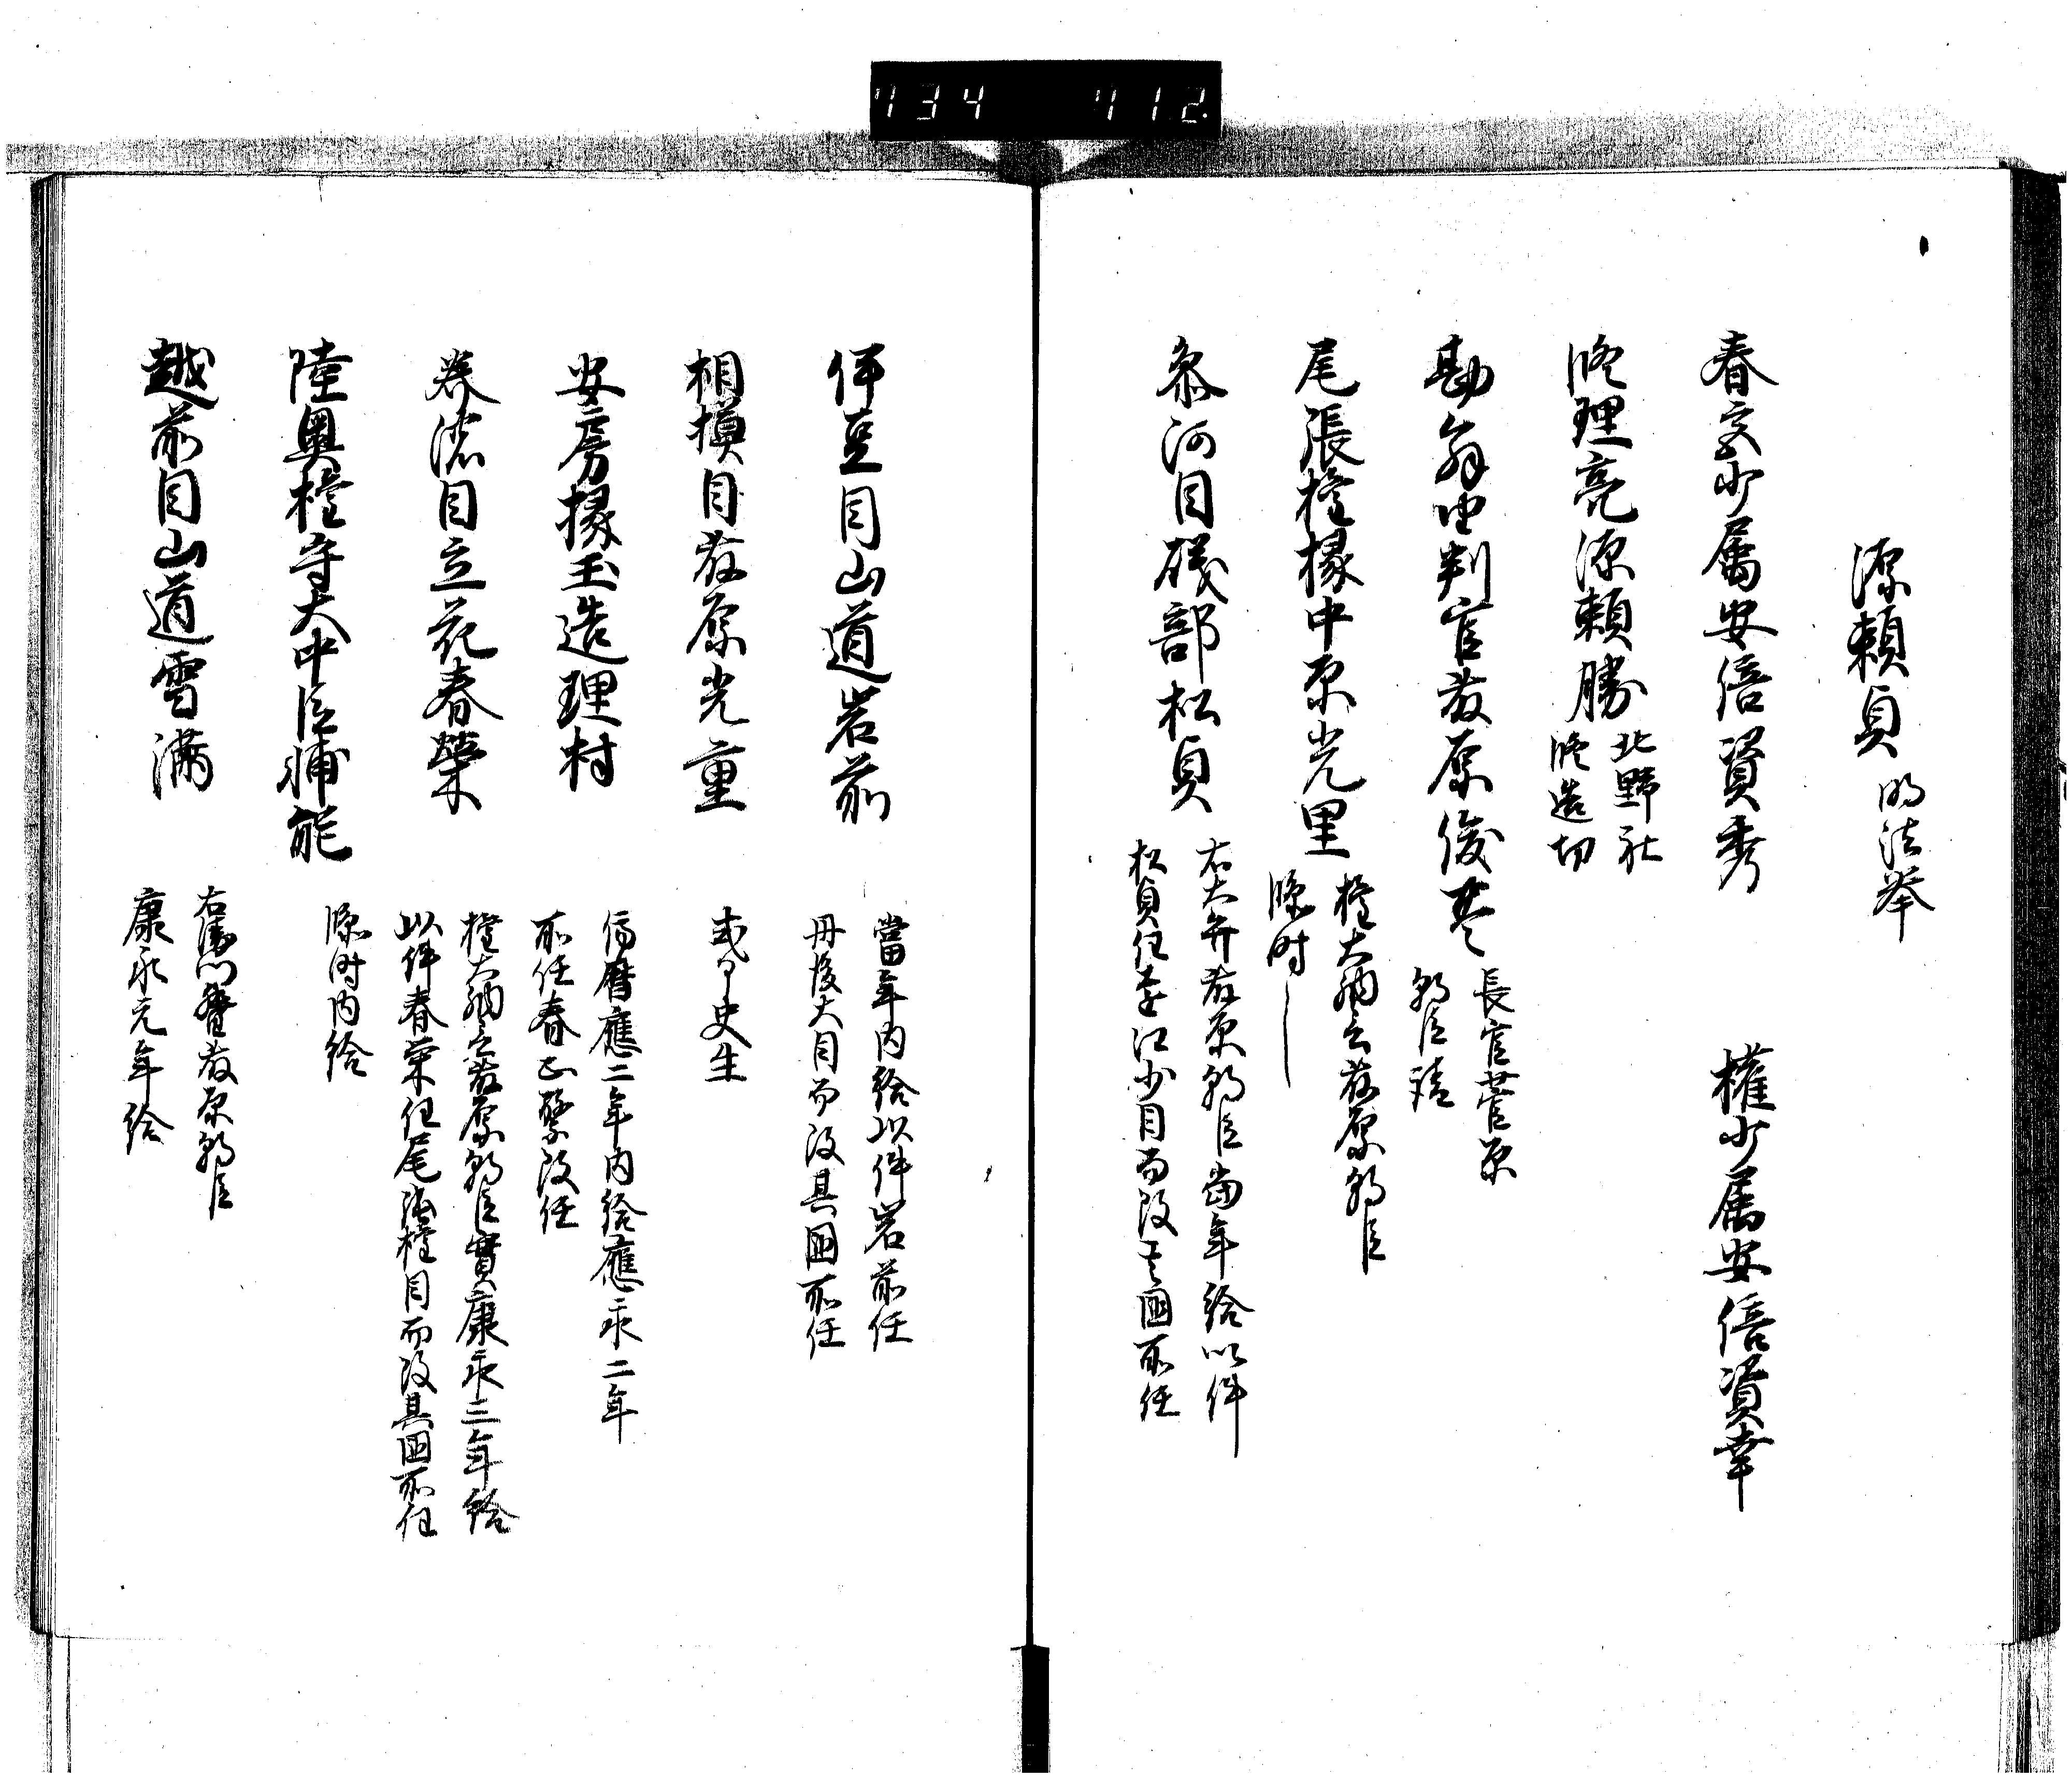 434 412
源頼貞 明法挙
春宮少属安倍資秀 権少属安倍資幸
修理亮源頼勝 北野社
修造功
勘解由判官藤原俊基 長官菅原
朝臣請
尾張権掾中原光里 権大納言藤原朝臣
臨時
参河目礒部松貞 右大弁藤原朝臣当年給以件
松貞任遠江少目而改其国所任
伊豆目山道岩前 當年内給以件岩前任
丹後大目而改其国所任
相模目藤原光重 式部史生
安房掾玉造理村 停暦應二年内給應永二年
所任春正繁改任
美濃目立花春榮 権大納言藤原朝臣實康永三年給
以件春栄任尾張権目而改其国所任
陸奥権守大中臣輔能 臨時内給
越前目山道雪満 右衛門督藤原朝臣
康永元年給